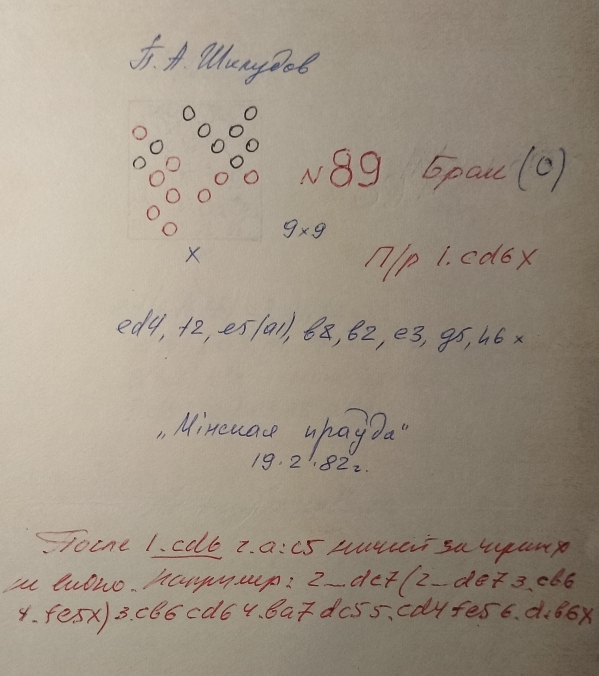 П. А. Шклудов
N 89 Брак (0)
9×9
П/р 1. cd6 X
X
ed4, f2, e5 (a1), b8, b2, e3, g5, h6 ×
„Мінская праўда"
19.2.82г.
После 1. cd6 2. a:c5 ничьей за черных
не видно. Например: 2_dc7 (2_de7 3. cb6
4. fe5X) 3. cb6 cd6 4. ba7 dc5 5. cd4 fe5 6. d:b6X